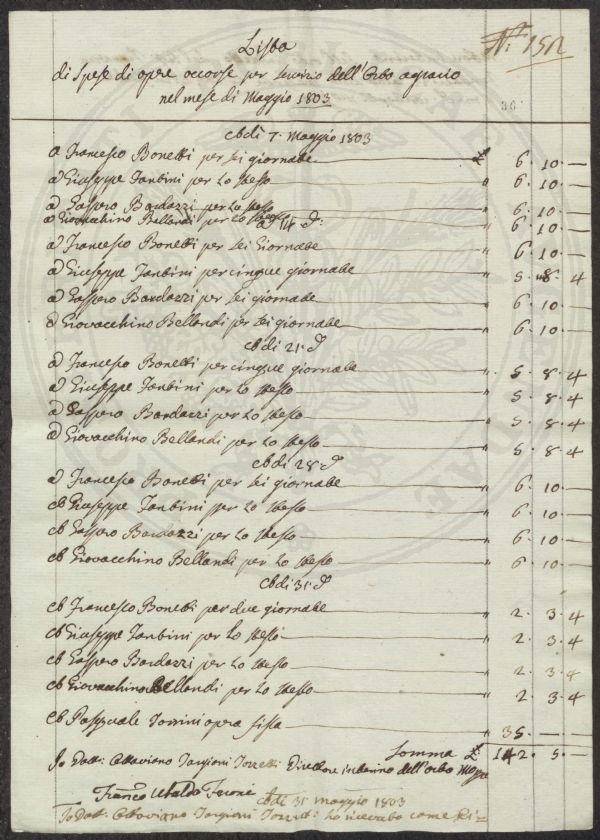 Lista
N.° 152
di Spese di opere occorse per servizio dell'Orto agrario
nel mese di Maggio 1803
36
Adi 7. Maggio 1803
a Francesco Bonetti per sei giornate £ 6. 10. —
a Giuseppe Tantini per lo stesso " 6. 10. —
a Gaspero Bardazzi per lo stesso " 6. 10. —
a Giovacchino Bellandi per lo stesso " 6. 10. —
a' 14 d.°
a Francesco Bonetti per sei Giornate " 6. 10. —
a Giuseppe Tantini per cinque giornate " 5. 8. 4
a Gaspero Bardazzi per sei giornate " 6. 10. —
a Giovacchino Bellandi per sei giornate " 6. 10. —
Adi 21. d.°
a Francesco Bonetti per cinque giornate " 5. 8. 4
a Giuseppe Tantini per lo stesso " 5. 8. 4
a Gaspero Bardazzi per lo stesso " 5. 8. 4
a Giovacchino Bellandi per lo stesso " 5. 8. 4
Adi 28 d.°
a Francesco Bonetti per sei giornate " 6. 10. —
A Giuseppe Tantini per lo stesso " 6. 10. —
A Gaspero Bardazzi per lo stesso " 6. 10. —
A Giovacchino Bellandi per lo stesso " 6. 10. —
Adi 31. d.°
A Francesco Bonetti per due giornate " 2. 3. 4
A Giuseppe Tantini per lo stesso " 2. 3. 4
A Gaspero Bardazzi per lo stesso " 2. 3. 4
A Giovacchino Bellandi per lo stesso " 2. 3. 4
A Pasquale Tonini opera fissa " 35. —
Somma £ 142. 5. —
Io Dott. Ottaviano Targioni Tozzetti Direttore interino dell'orto
Franc.° Ubaldo
Adi 31 maggio 1803
Io Dott. Ottaviano Targioni Tozzetti ho ricevuto come